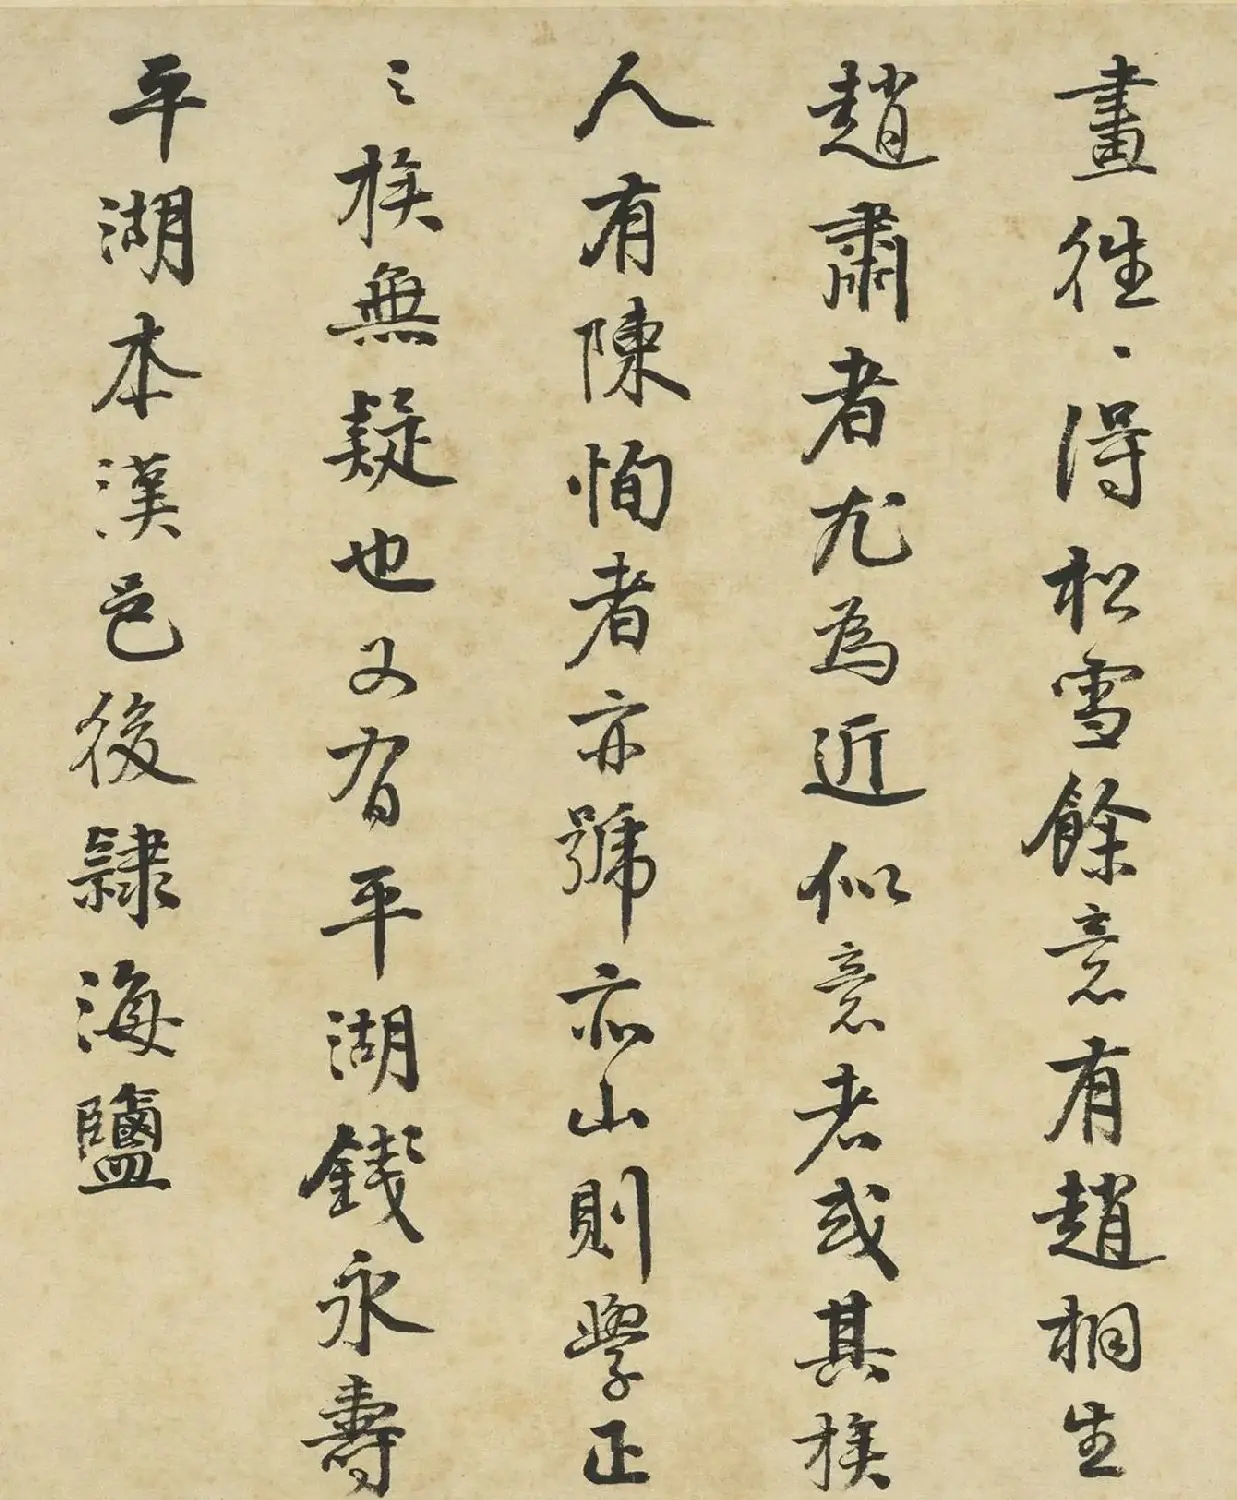 畫往〻得松雪餘意有趙桐生
趙肅者尤為近似意者或其族
人有陳恂者亦號亦山則學正
之族無疑也又有平湖錢永壽
平湖本漢邑後隸海鹽